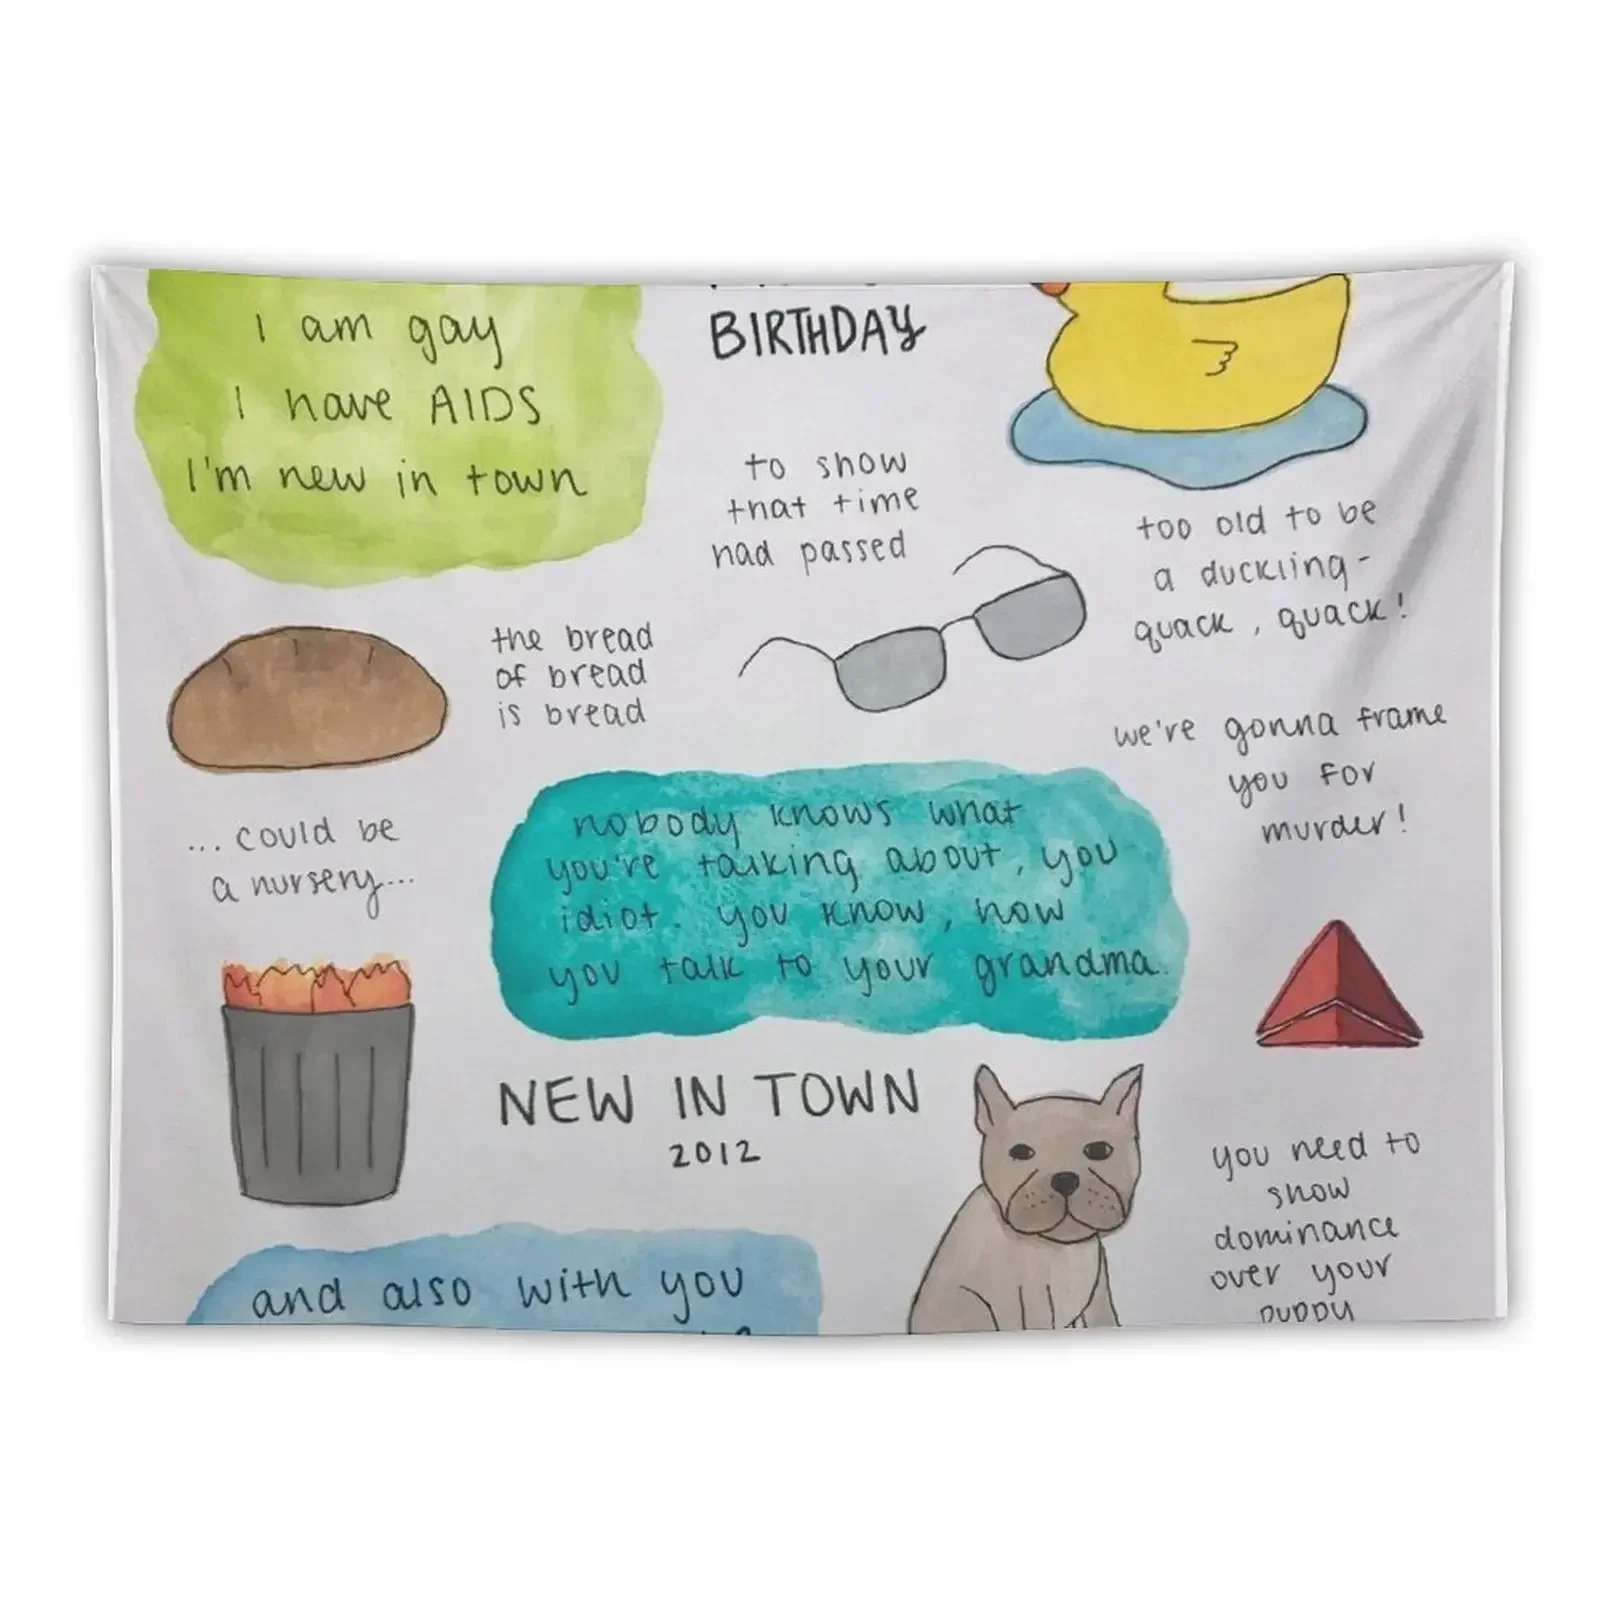 I am gay
I have AIDS
I'm new in town
BIRTHDAY
to show
that time
had passed
too old to be
a duckling-
quack, quack!
the bread
of bread
is bread
we're gonna frame
you for
murder!
...could be
a nursery...
nobody knows what
you're talking about, you
idiot. you know, how
you talk to your grandma.
NEW IN TOWN
2012
you need to
show
dominance
over your
puppy
and also with you